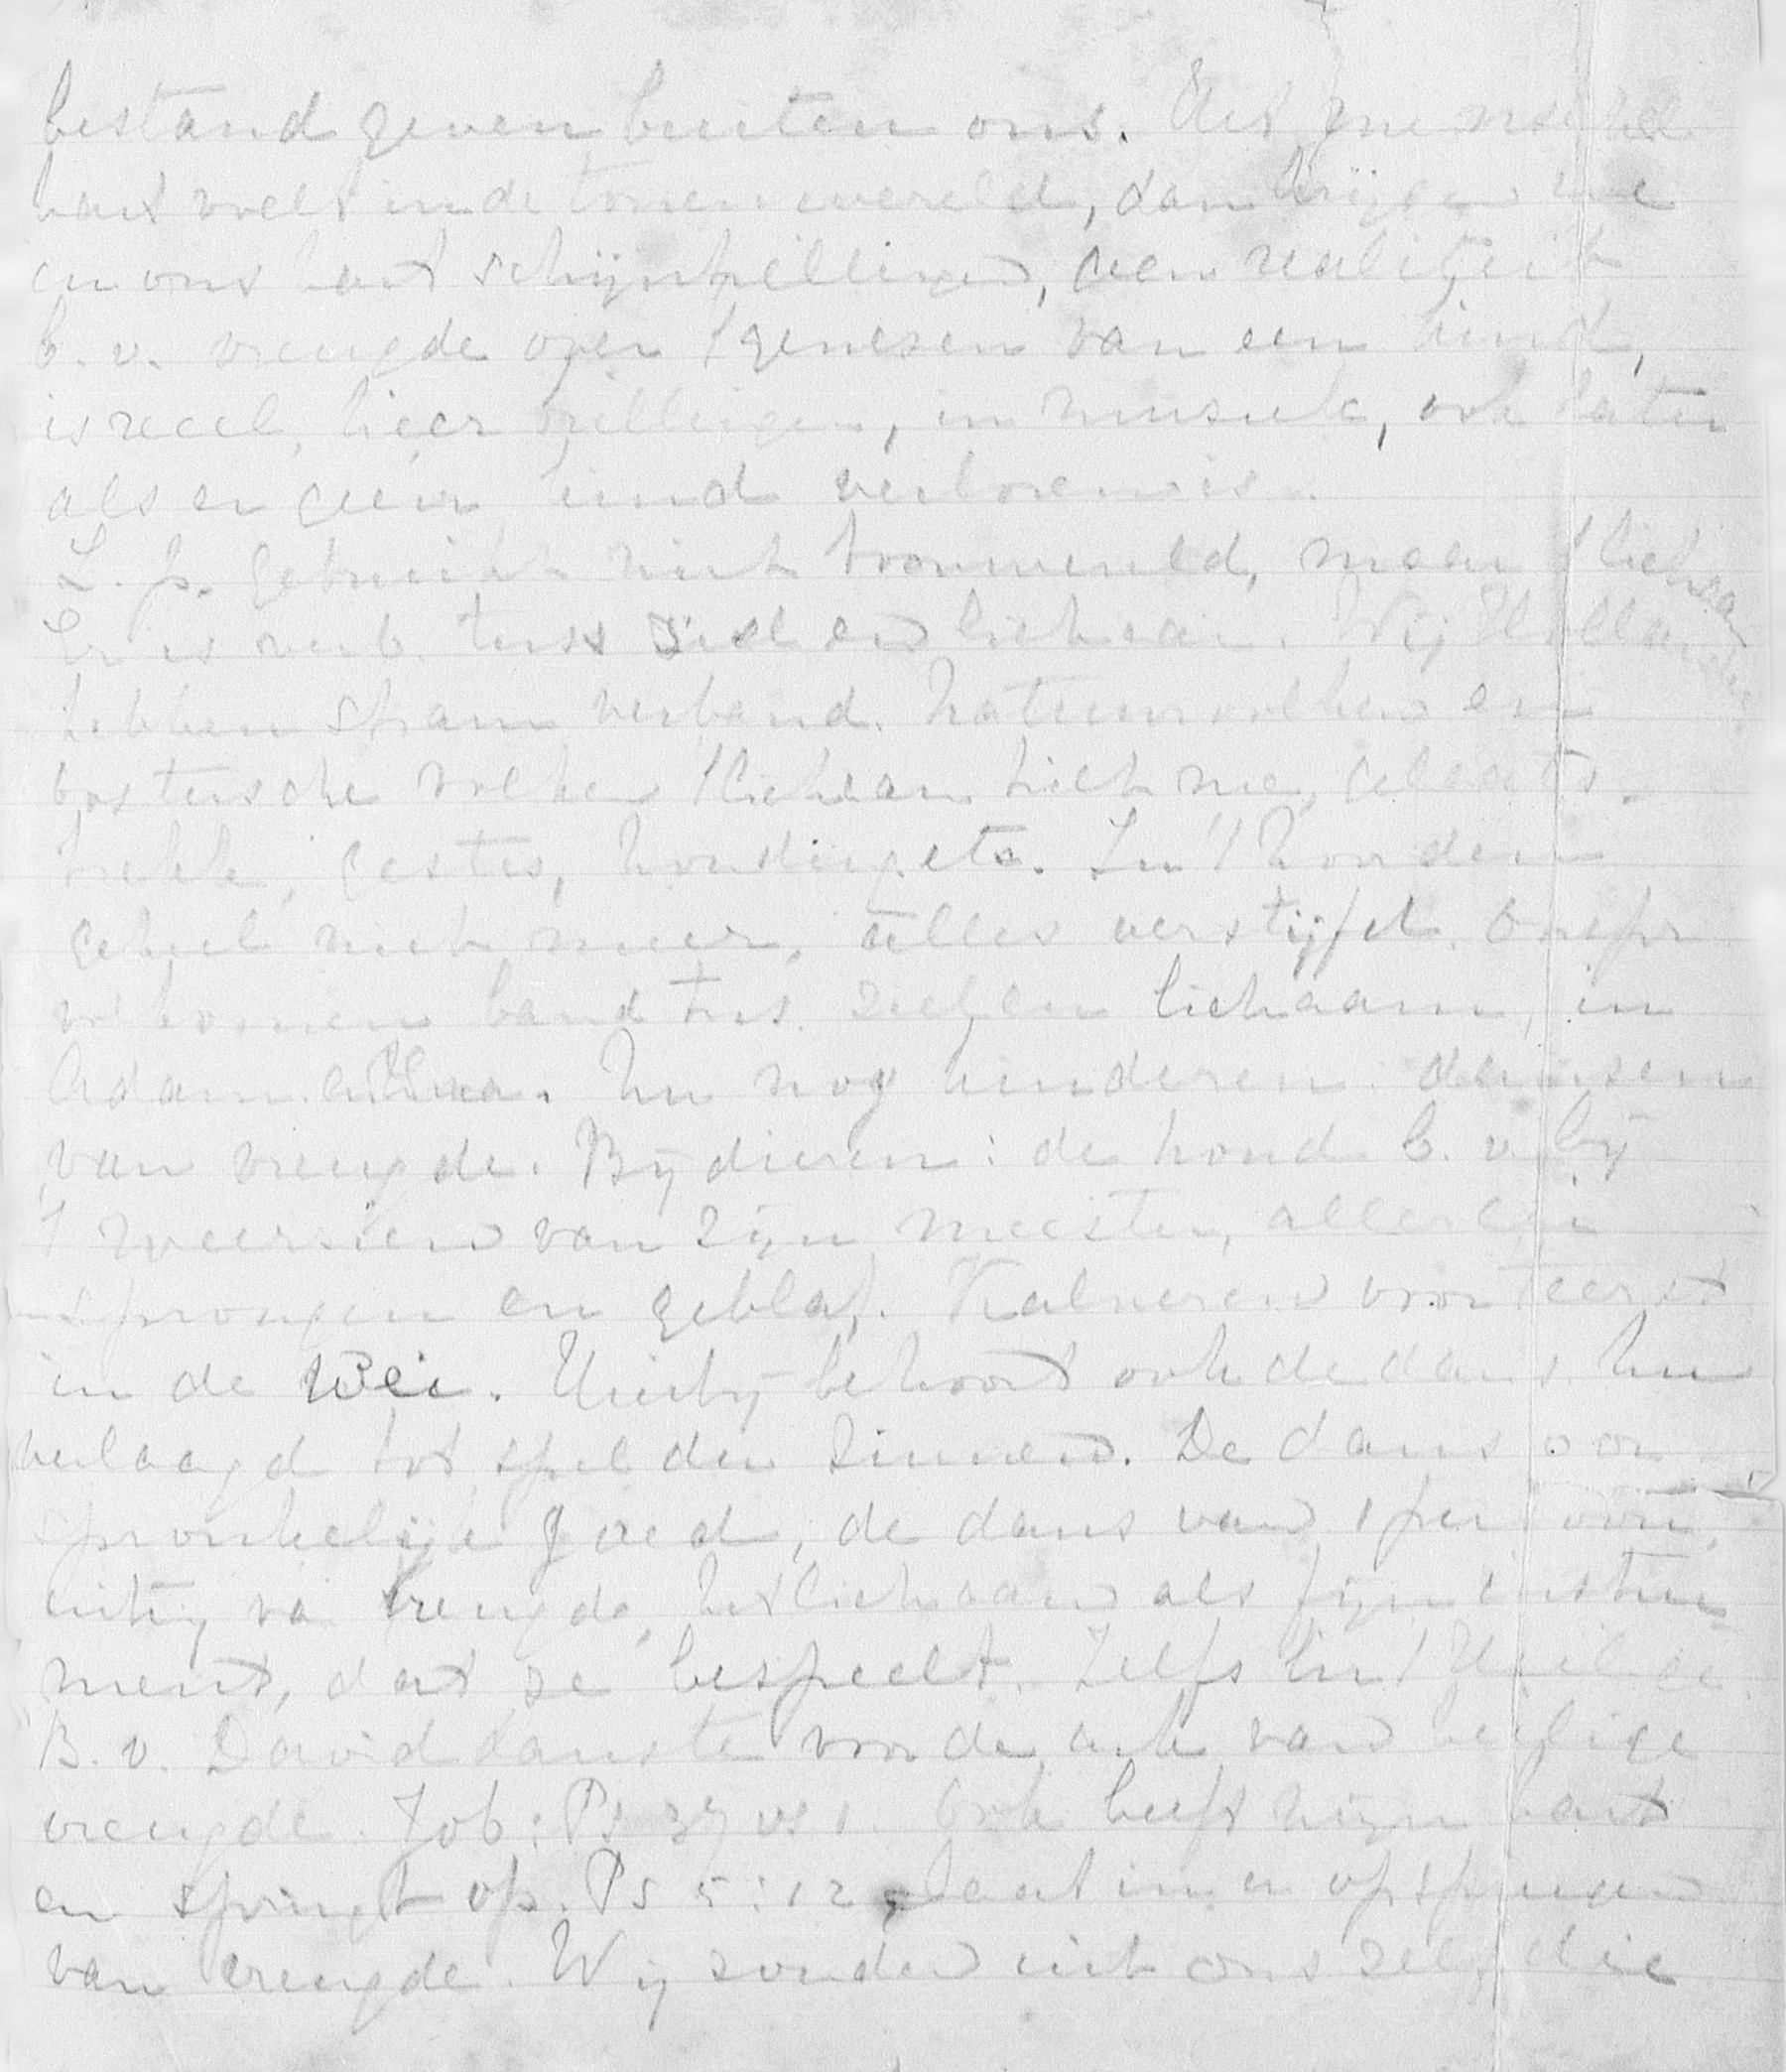 bestand geven buiten ons. Het menschel.
hart voelt in de tonenwereld, dan krijgen we
in ons hart schijntrillingen, geen realiteit
b.v. vreugde over 't genezen van een kind,
is reeel, hier trillingen, in muziek, ook laten
als er geen kind verloren is.
L.p. gebruikt niet toonwereld, maar 't lichaam
Er is verb. tuss ziel en lichaam. Wij Hollanders
hebben stram verband. Natuurvolken en
Oostersche volken 't lichaam liet mee, gelaats-
trekk, gestes, houding etc. In 't Noorden
geheel niet meer, alles verstijfd. Oorspr
volkomen band tus. ziel en lichaam, in
Adam en Eva. Nu nog kinderen: dansen
van vreugde. Bij dieren: de hond b.v. bij
't weerzien van zijn meester, allerlei
sprongen en geblaf. Kalveren voor 't eerst
in de wei. Hierbij behoort ook de dans. Nu
verlaagd tot spel der zinnen. De dans oor
spronkelijk goed, de dans van 1 persoon,
uiting va vreugde, het lichaam als fijn instru
ment, dat ze bespeelt. Zelfs in 't Heilige
B.v. David danste voor de ark van heilige
vreugde. Job: Ps 37 vs 1. Ook beeft mijn hart
en springt op. Ps 5:12, laat in u opspringen
van vreugde. Wij zouden uit ons zelf die